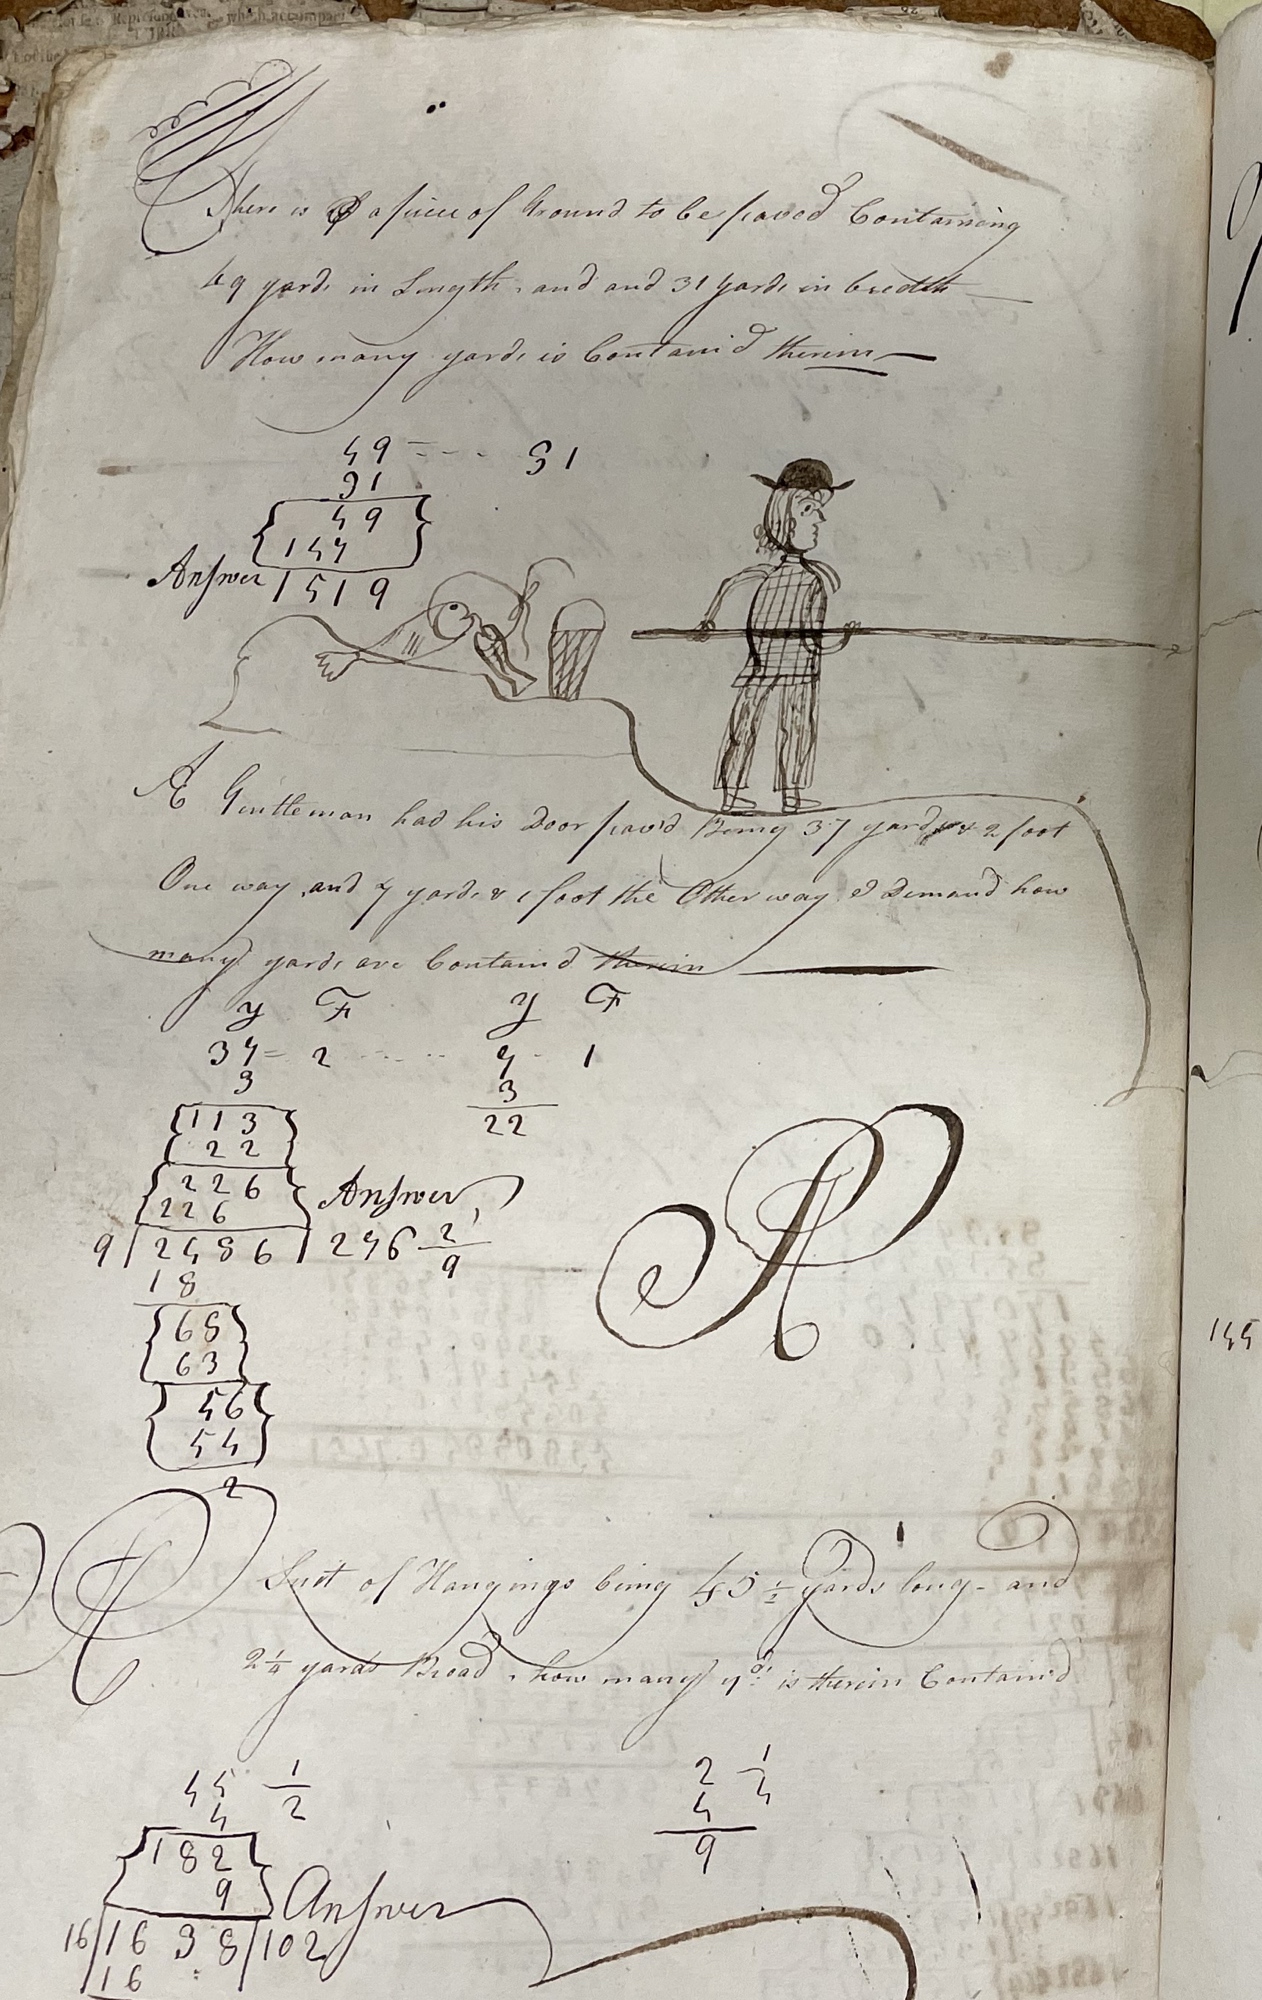 There is a piece of Ground to be paved Containing
49 yards in Length, and and 31 yards in bredth
How many yards is Contain'd therein
49 = - - - 31
31
49
147
Answer 1519
A Gentleman had his Door pav'd Being 37 yards & 2 foot
One way, and 7 yards & 1 foot the Other way I Demand how
many yards are Contain'd therein
Y F Y F
37 = 2 - - - - - 7 - 1
3 3
113 22
22
226 Answer
226
9 | 2486 | 276 2/9
18
68
63
56
54
2
A Suit of Hangings being 45 1/2 yards long - and
2 1/4 yards Broad, how many yds is therein Contain'd
45 1/2 2 1/4
4 4
182 9
9 Answer
16 | 1638 | 102
16
145